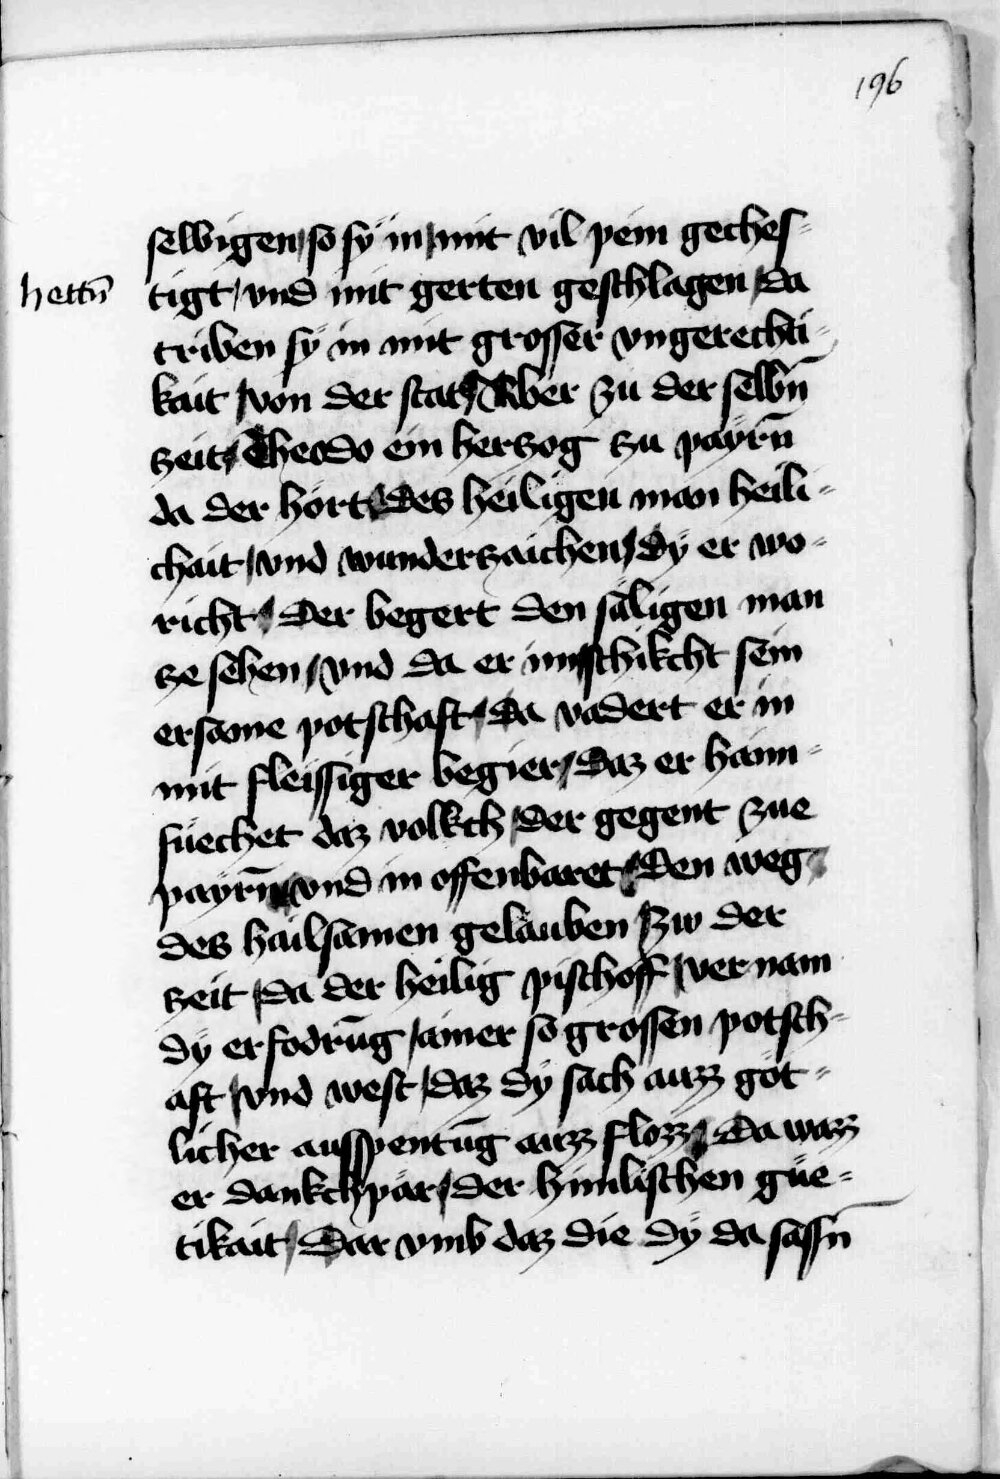 196
selbigen / so sÿ in / mit vil pein geches-
hettn̄
tigt / vnd mit gerten geschlagen / da
triben sÿ in mit grosser vngerechti-
kait / von der stat / Aber zu der selbn̄
zeit / Theodo ein herzog zu payrn̄
da der hört / des heiligen man heili-
chait / vnd wunderzaichen / dÿ er wo-
richt / Der begert den säligen man
ze sehen / vnd da er im schikcht sein
ersame potschaft / Da vadert er in
mit fleissiger begier / daz er haim-
süechet daz volkch / der gegent zue
payrn̄ / vnd in offenbaret / den weg
des hailsamen gelauben / Zw der
zeit / da der heilig pischoff / ver nam
dÿ erfodrūg / ainer so grossen potsch-
aft / vnd west / daz dÿ sach auzz göt-
licher ausspentūg auzz flozz / Da wazz
er dankchpär / der himlischen güe-
tikait / Dar vmb daz die dÿ da sassn̄